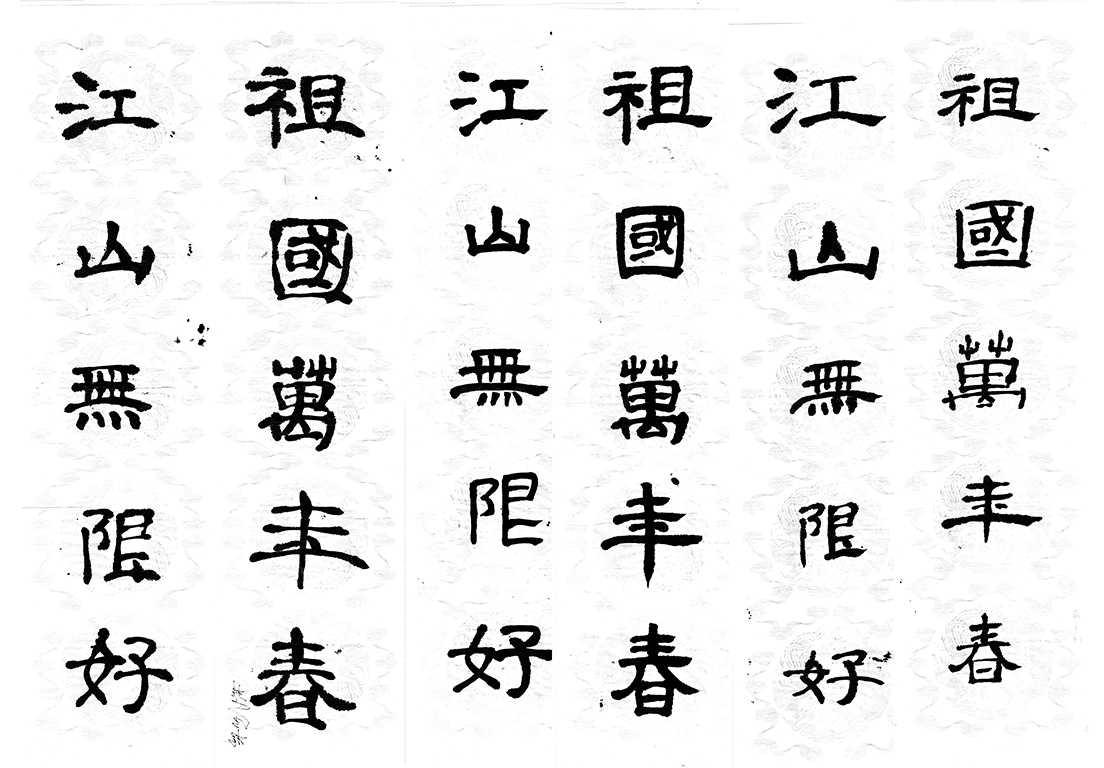 祖國萬年春
江山無限好
祖國萬年春
江山無限好
祖國萬年春
江山無限好